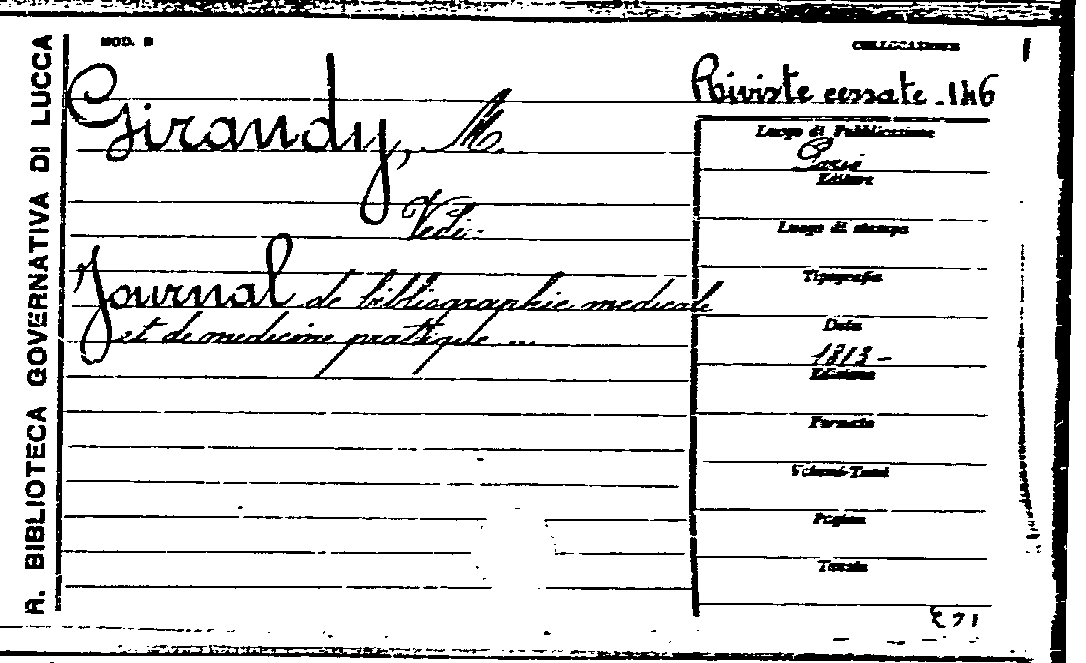 R. BIBLIOTECA GOVERNATIVA DI LUCCA
MOD. B
COLLOCAZIONE
Riviste cessate. 146
Girandy, M.
Vedi:
Journal de bibliographie medicale
et de medecine prattique ...
Luogo di Pubblicazione
Paris
Editore
Luogo di stampa
Tipografia
Data
1813-
Edizione
Formato
Volumi-Tomi
Pagine
Tavole